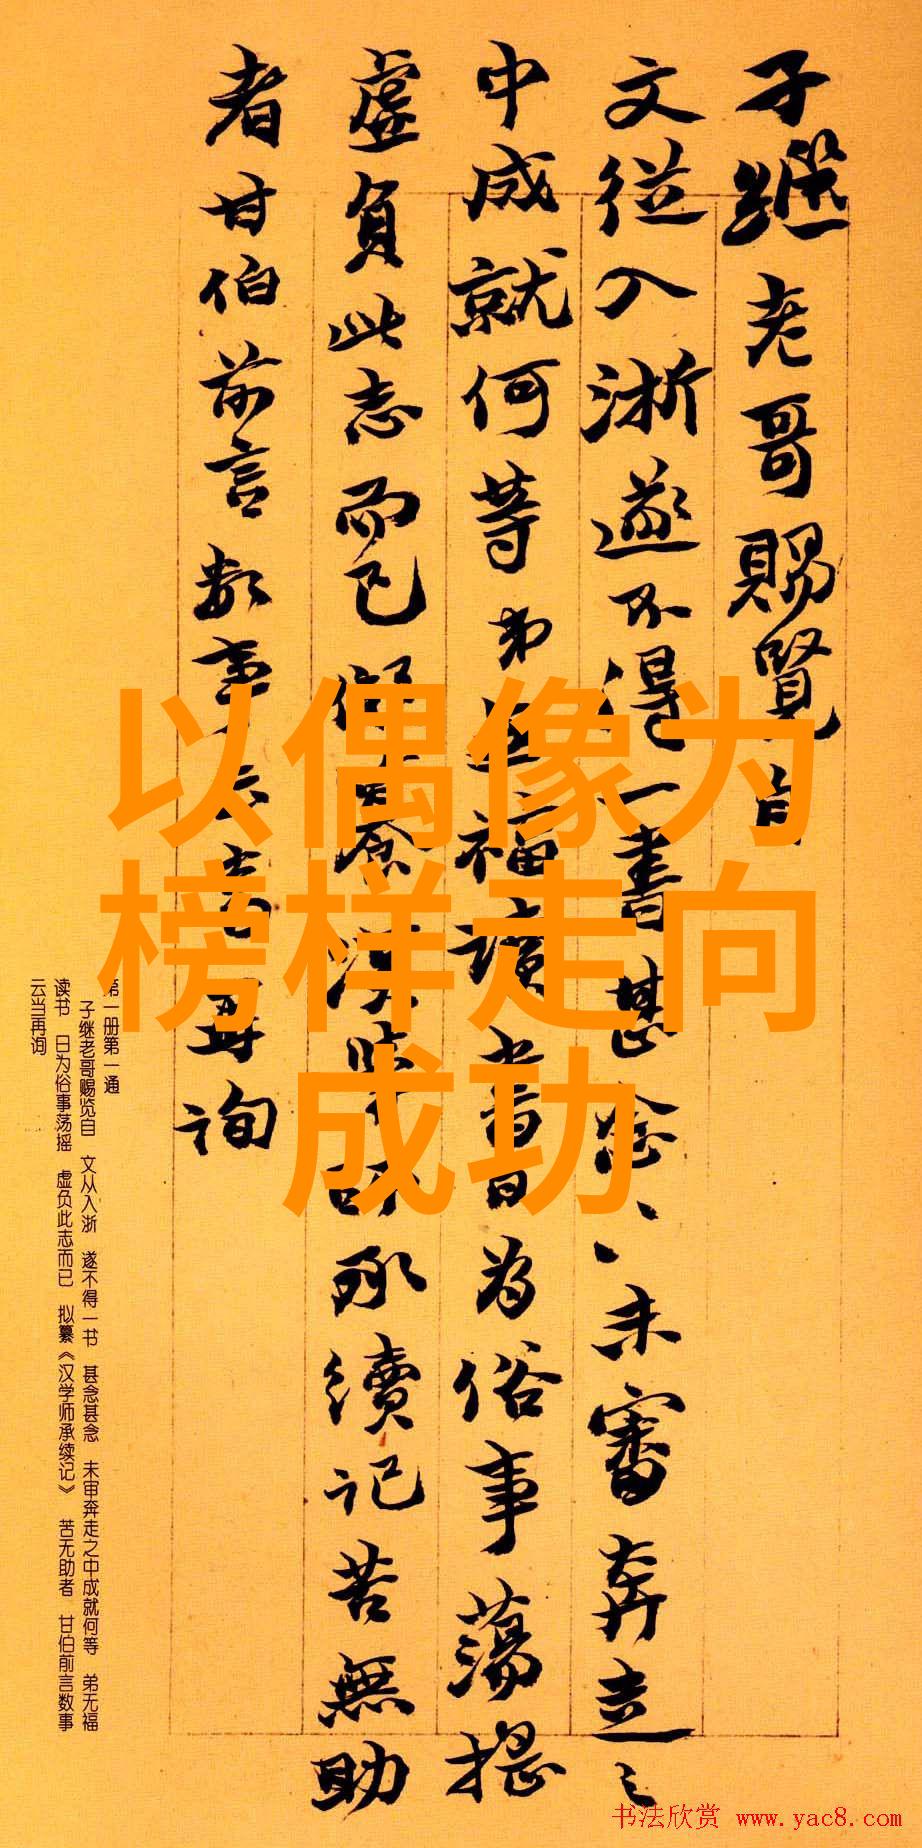 子继老哥赐覧自
文從入浙遂不得一書甚念〻未審奔走之
中成就何等弟無福讀書日為俗事蕩摇
虛負此志而已儗纂漢學師承續記苦無助
者甘伯前言数事云当再詢
以偶像为
榜样走向
成功
第一册第一通
子继老哥赐览自　文从入浙　遂不得一书　甚念甚念　未审奔走之中成就何等　弟无福
读书　日为俗事荡摇　虚负此志而已　拟纂《汉学师承续记》　苦无助者　甘伯前言数事
云当再询
书法欣赏 www.yac8.com